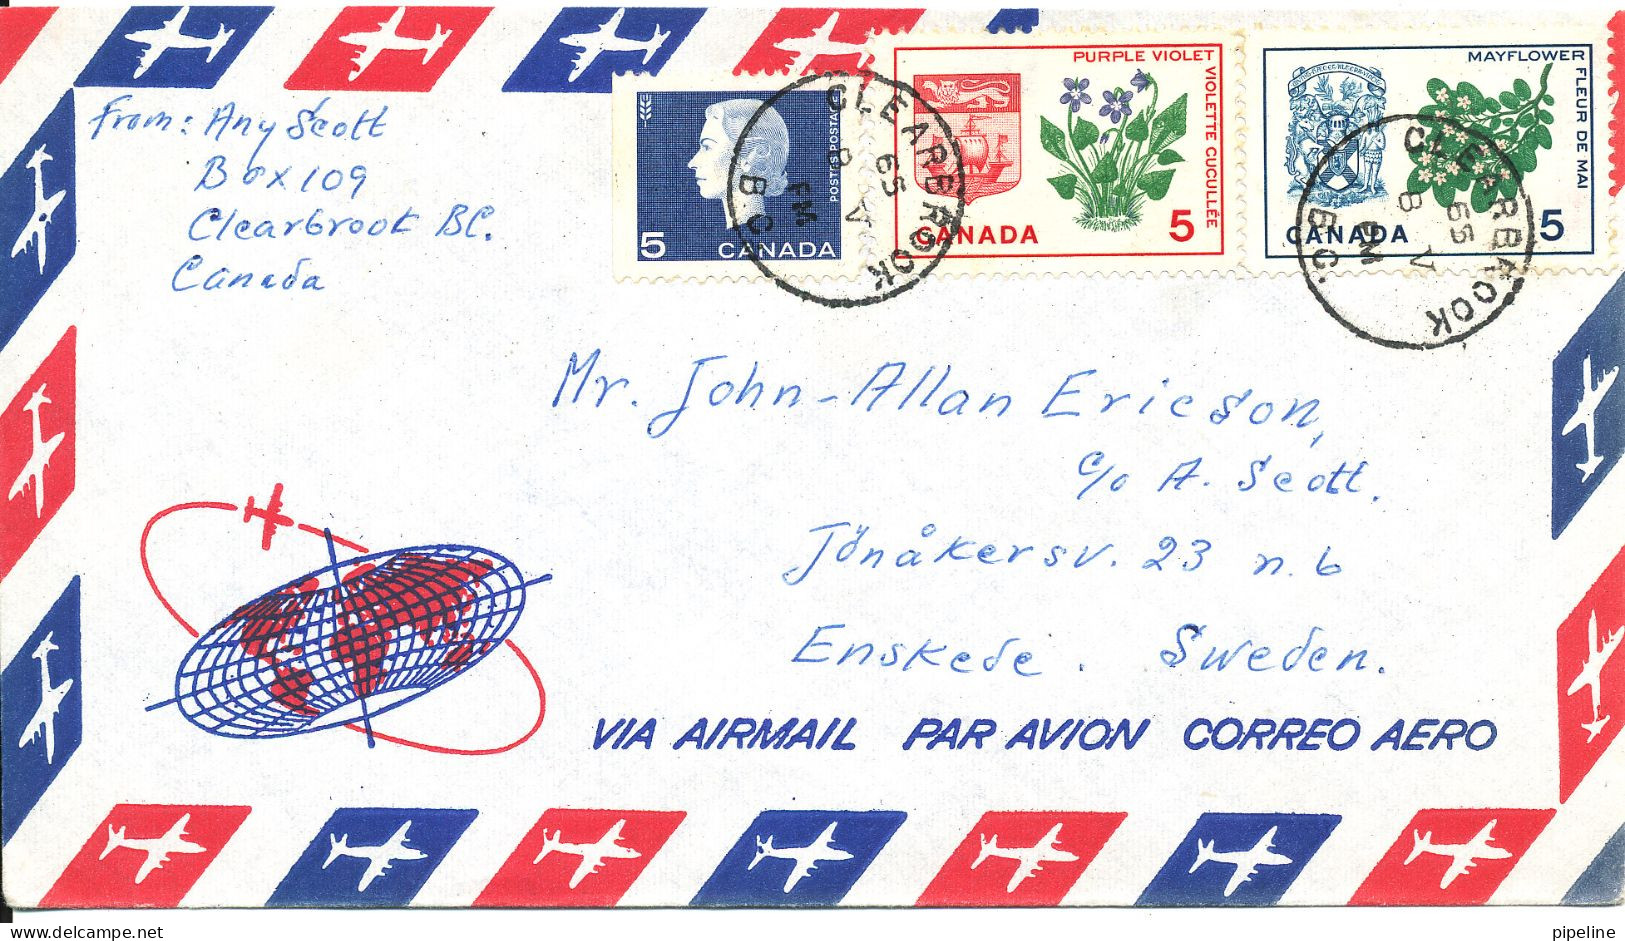 From: Any Scott
Box 109
Clearbrook BC.
Canada
POSTES POSTAGE
5 CANADA
PURPLE VIOLET
VIOLETTE CUCULLÉE
CANADA 5
MAYFLOWER
FLEUR DE MAI
CANADA 5
CLEARBROOK
PM
8 V
65
B C
CLEARBROOK
PM
8 V
65
B.C.
Mr. John-Allan Ericson,
c/o A. Scott.
Jönåkersv. 23 n.b
Enskede. Sweden.
VIA AIRMAIL PAR AVION CORREO AERO
delcampe.net
pipeline